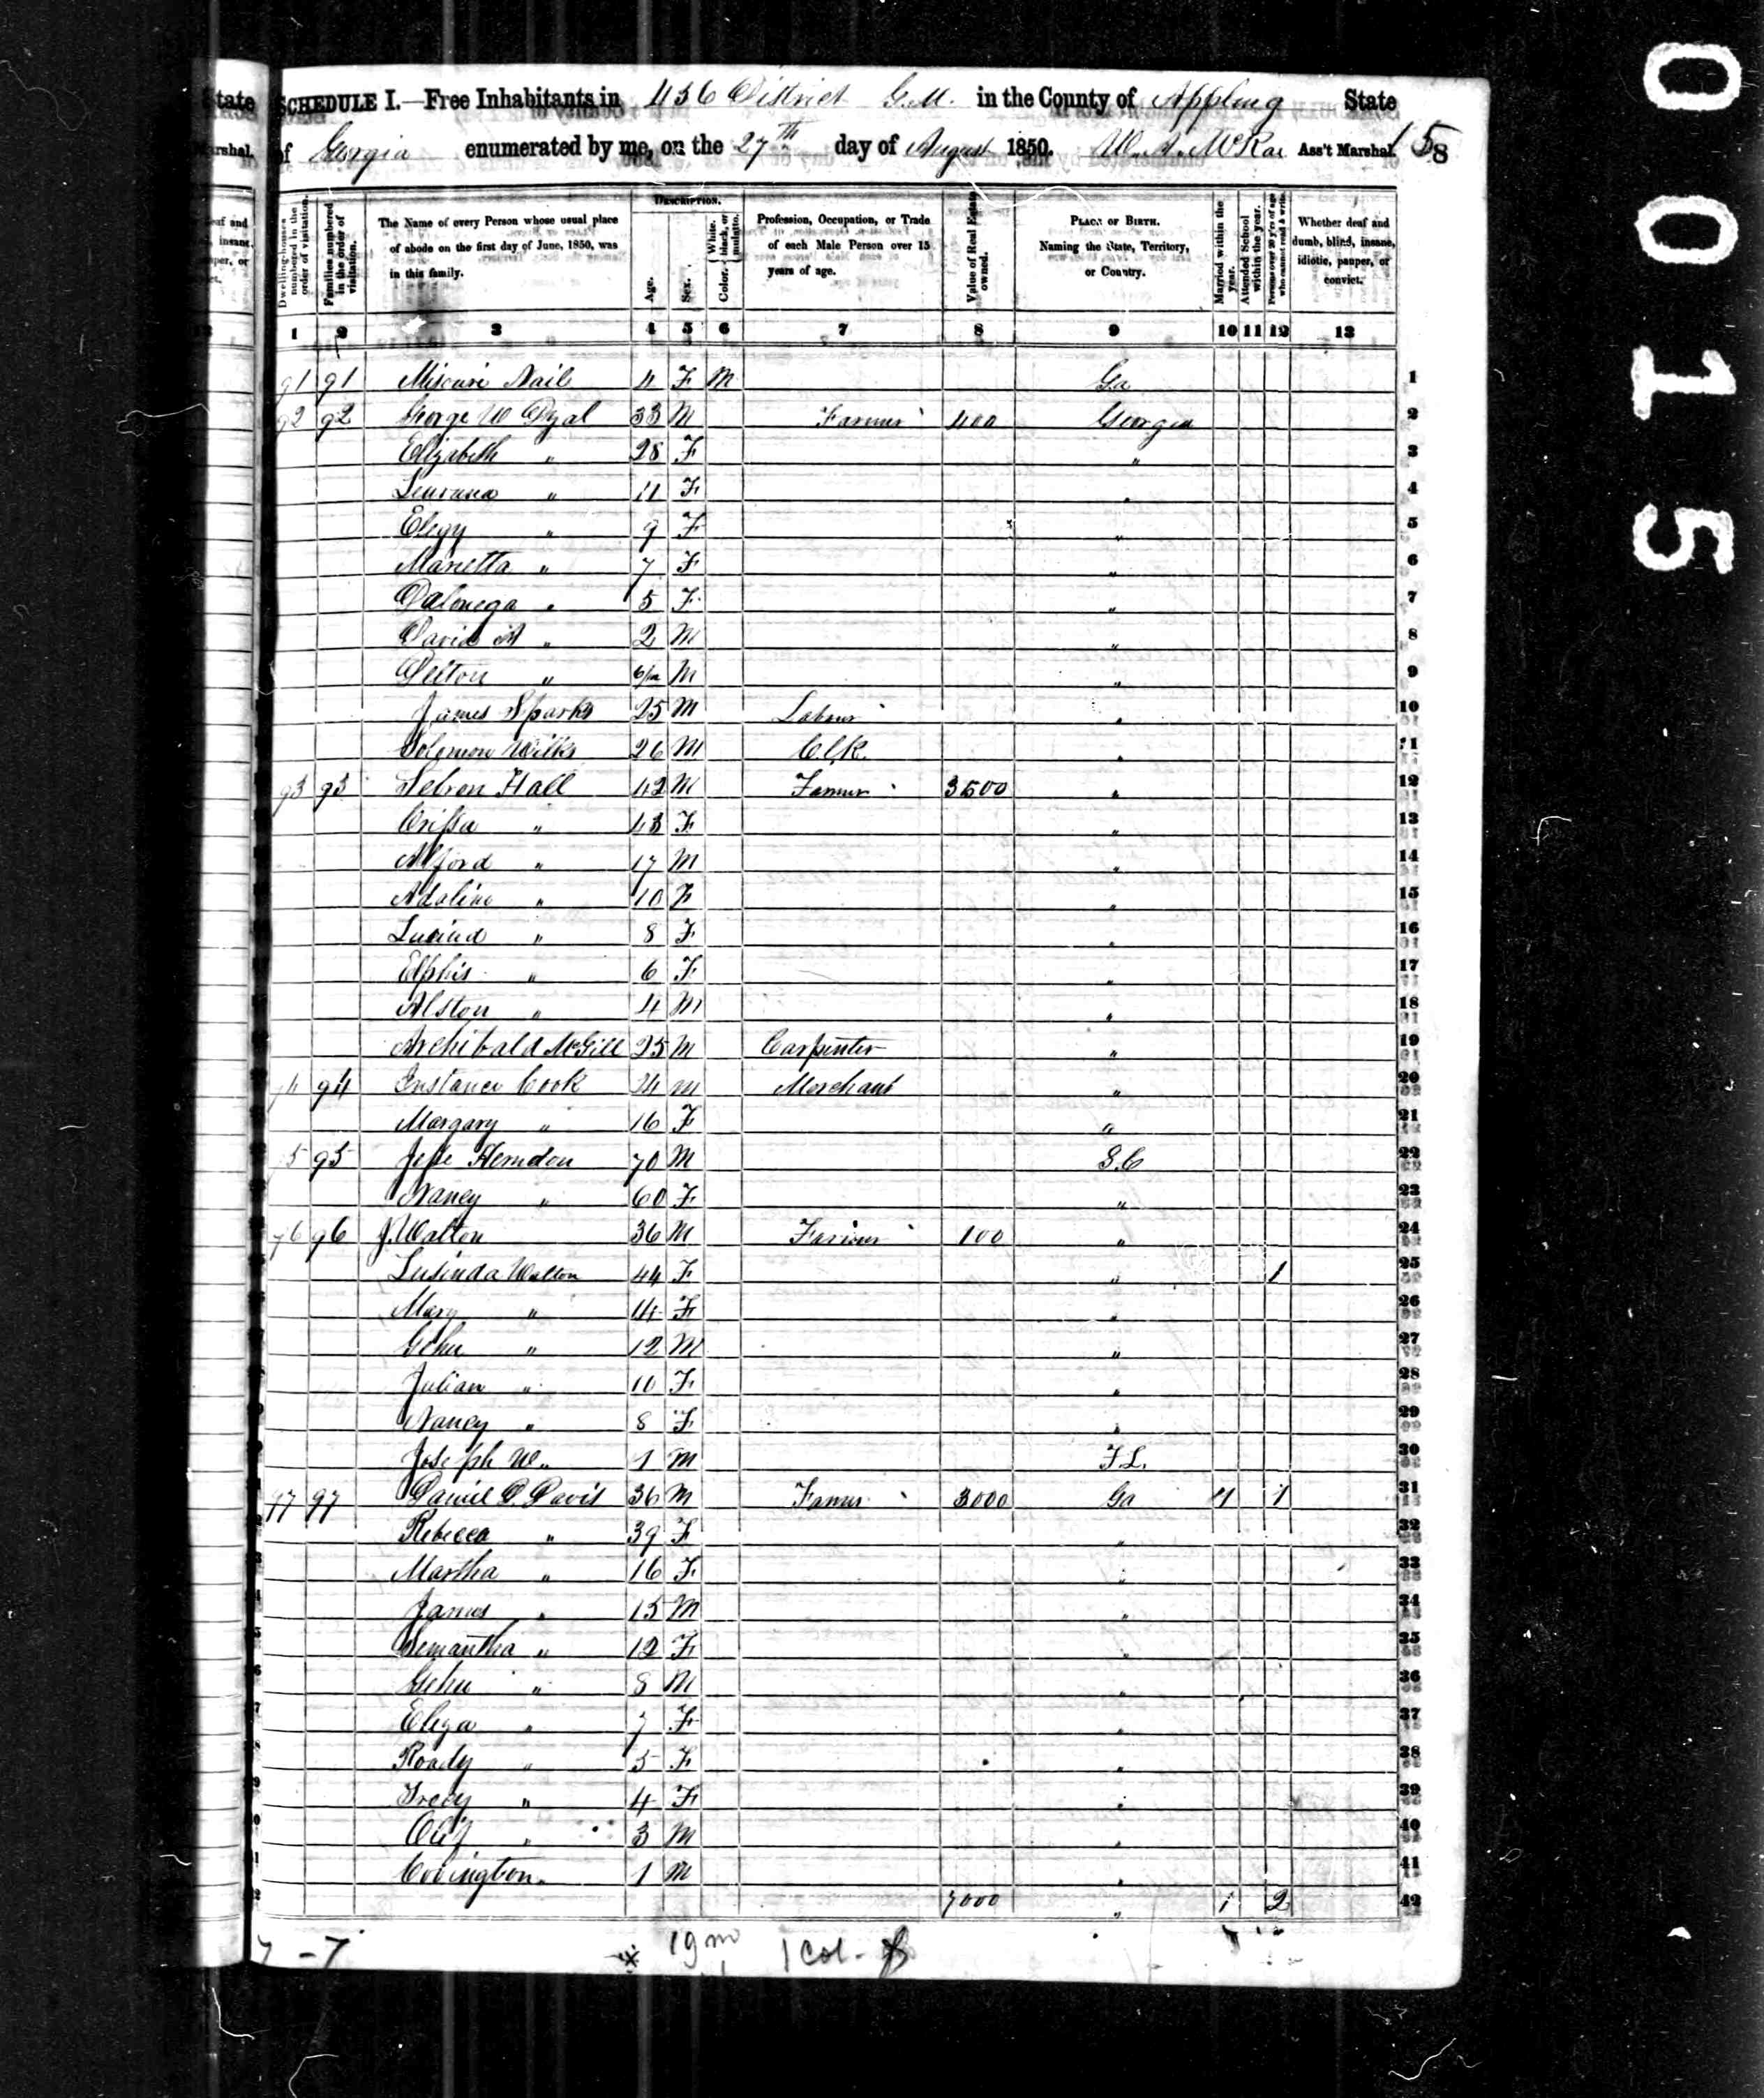 SCHEDULE I.—Free Inhabitants in 436 District G.M. in the County of Appling State
of Georgia enumerated by me, on the 27th day of August 1850. Ass't Marshal. 15 8
State
Marshal.
Dwelling-houses numbered in the order of visitation.
Families numbered in the order of visitation.
The Name of every Person whose usual place of abode on the first day of June, 1850, was in this family.
DESCRIPTION.
Age.
Sex.
Color. White, black, or mulatto.
Profession, Occupation, or Trade of each Male Person over 15 years of age.
Value of Real Estate owned.
PLACE OF BIRTH. Naming the State, Territory, or Country.
Married within the year.
Attended School within the year.
Persons over 20 y'rs of age who cannot read & write.
Whether deaf and dumb, blind, insane, idiotic, pauper, or convict.
1 2 3 4 5 6 7 8 9 10 11 12 13
91 91 Misouri Nail 4 F M Ga 1
92 92 George W Dyal 33 M Farmer 400 Georgia 2
Elizabeth " 28 F " 3
" 11 F " 4
" 9 F " 5
Marietta " 7 F " 6
Dalonega " 5 F " 7
David " 2 M " 8
" 6/12 M " 9
James Sparks 25 M Labour " 10
Solomon Wilks 26 M Clk. " 11
93 93 Hall 42 M Farmer 3500 " 12
" 43 F " 13
Alford " 17 M " 14
Adaline " 10 F " 15
Lucind " 8 F " 16
Elphis " 6 F " 17
Alston " 4 M " 18
Archibald McGill 25 M Carpenter " 19
94 94 Cook 24 M Merchant " 20
Margary " 16 F " 21
95 95 Jesse Herndon 70 M S.C 22
Nancy " 60 F " 23
96 96 J. Walton 36 M Farmer 100 " 24
Lusinda Walton 44 F " 1 25
Mary " 14 F " 26
" 12 M " 27
Julian " 10 F " 28
Nancy " 8 F " 29
Joseph W " 1 M F L. 30
97 97 Daniel D. Davis 36 M Farmer 3000 Ga 1 1 31
Rebecca " 39 F " 32
Martha " 16 F " 33
James " 15 M " 34
Semantha " 12 F " 35
" 8 M " 36
Eliza " 7 F " 37
Roady " 5 F " 38
" 4 F " 39
" 3 M " 40
Covington " 1 M " 41
7000 " 1 2 42
7 - 7 19 m 1 Col -
0015